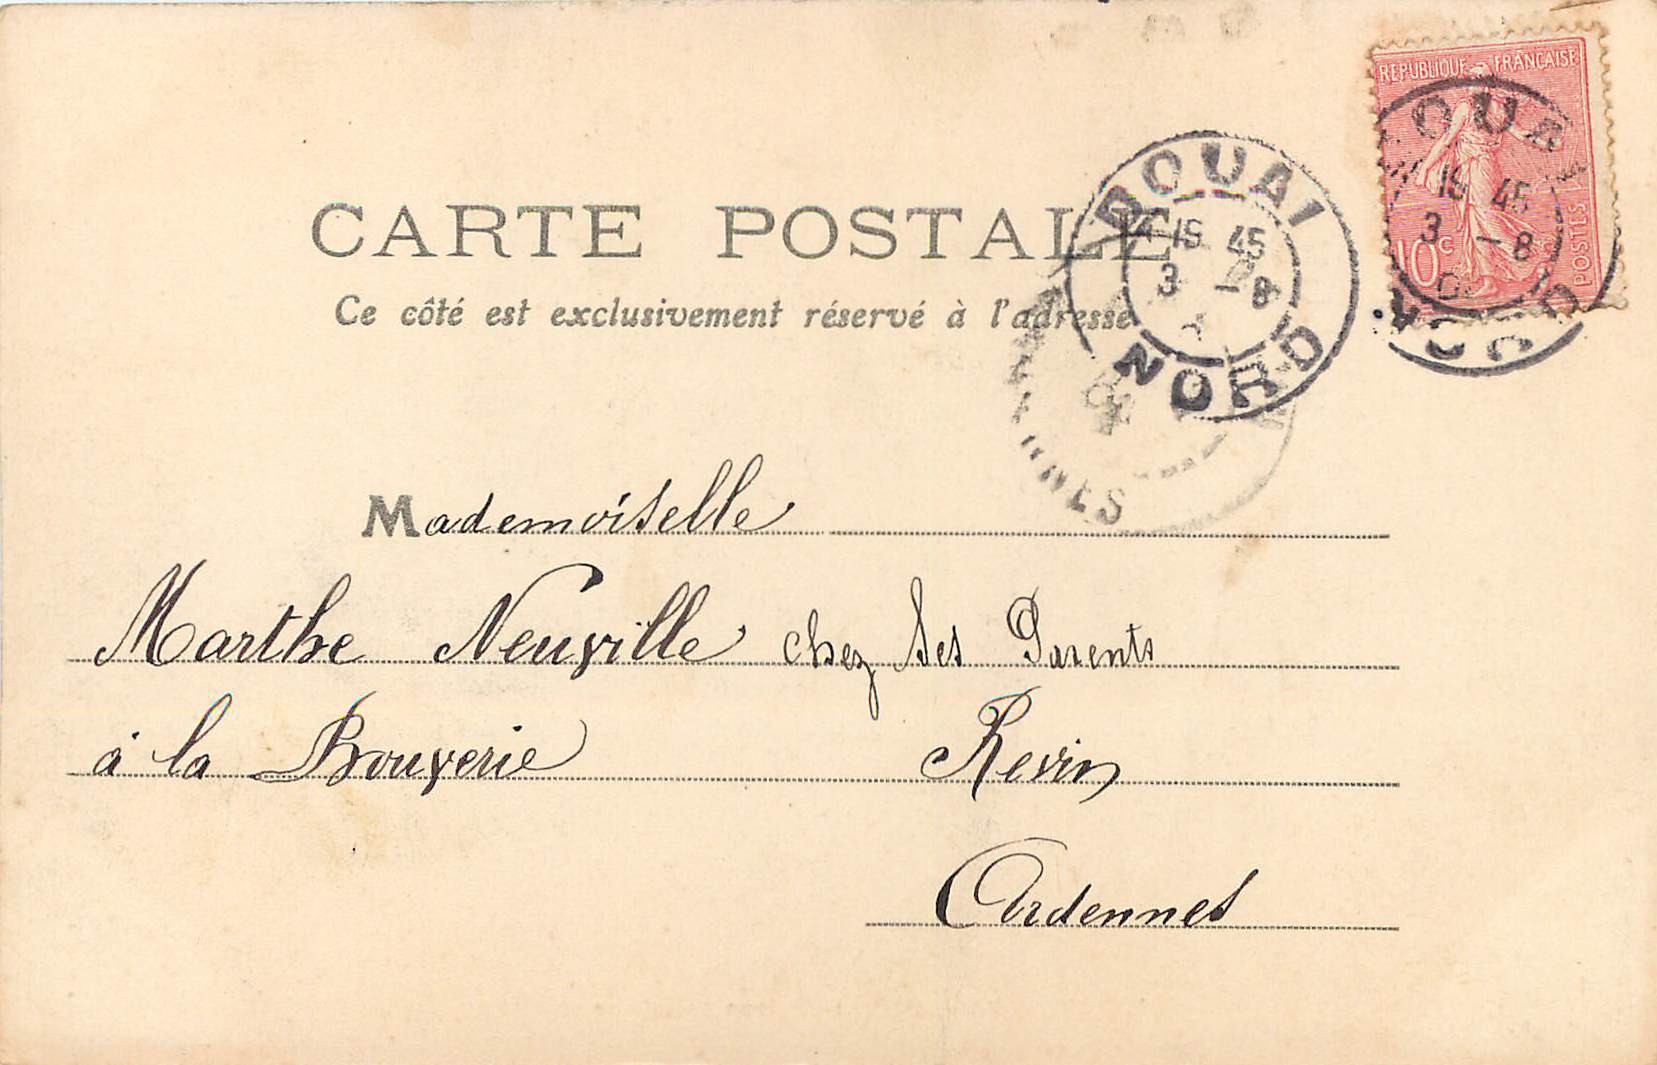 RÉPUBLIQUE FRANÇAISE
POSTES
10c
DOUAI
19 45
3 -8
NORD
CARTE POSTALE
DOUAI
19 45
3 -8
NORD
Ce côté est exclusivement réservé à l'adresse
Mademoiselle
Marthe Neuville chez Ses Parents
à la Bouverie Revin
Ardennes